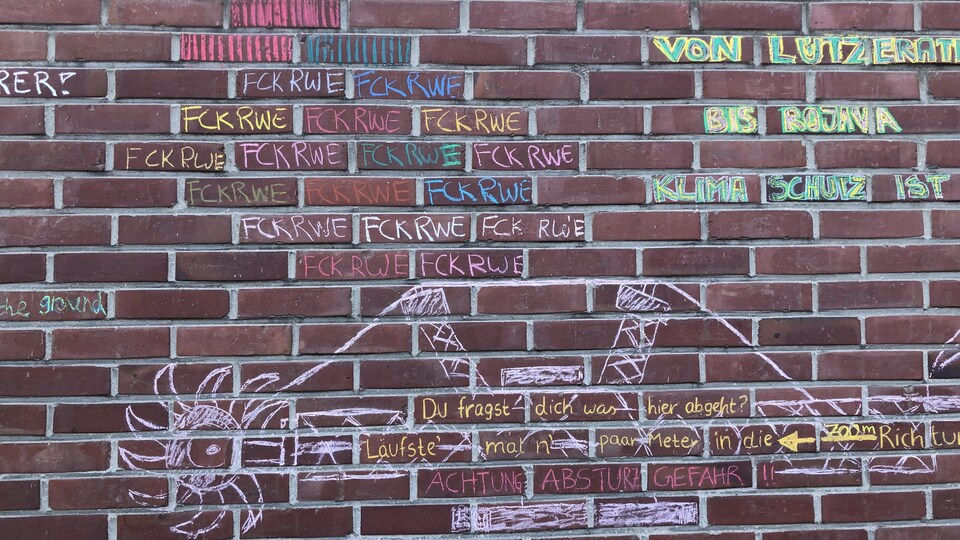 VON LÜTZERATH
RER?
FCK RWE FCK RWE
FCK RWE FCK RWE FCK RWE
BIS ROJAVA
FCK RWE FCK RWE FCK RWE FCK RWE
FCK RWE FCK RWE FCK RWE
KLIMA SCHUTZ IST
FCK RWE FCK RWE FCK RWE
FCK RWE FCK RWE
the ground
Du fragst dich was hier abgeht?
Läufste' mal n' paar Meter in die ← 200m Richtung
ACHTUNG ABSTURZ GEFAHR !!